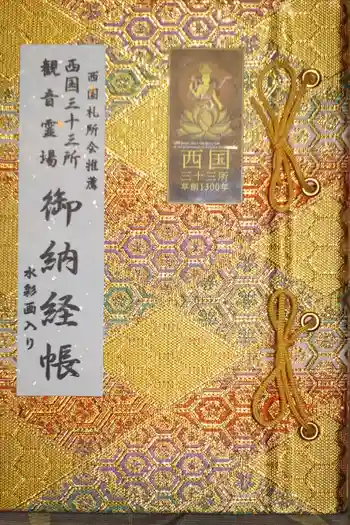 西国札所会推薦
西国三十三所
観音霊場
御納経帳
水彩画入り
西国
三十三所
草創1300年